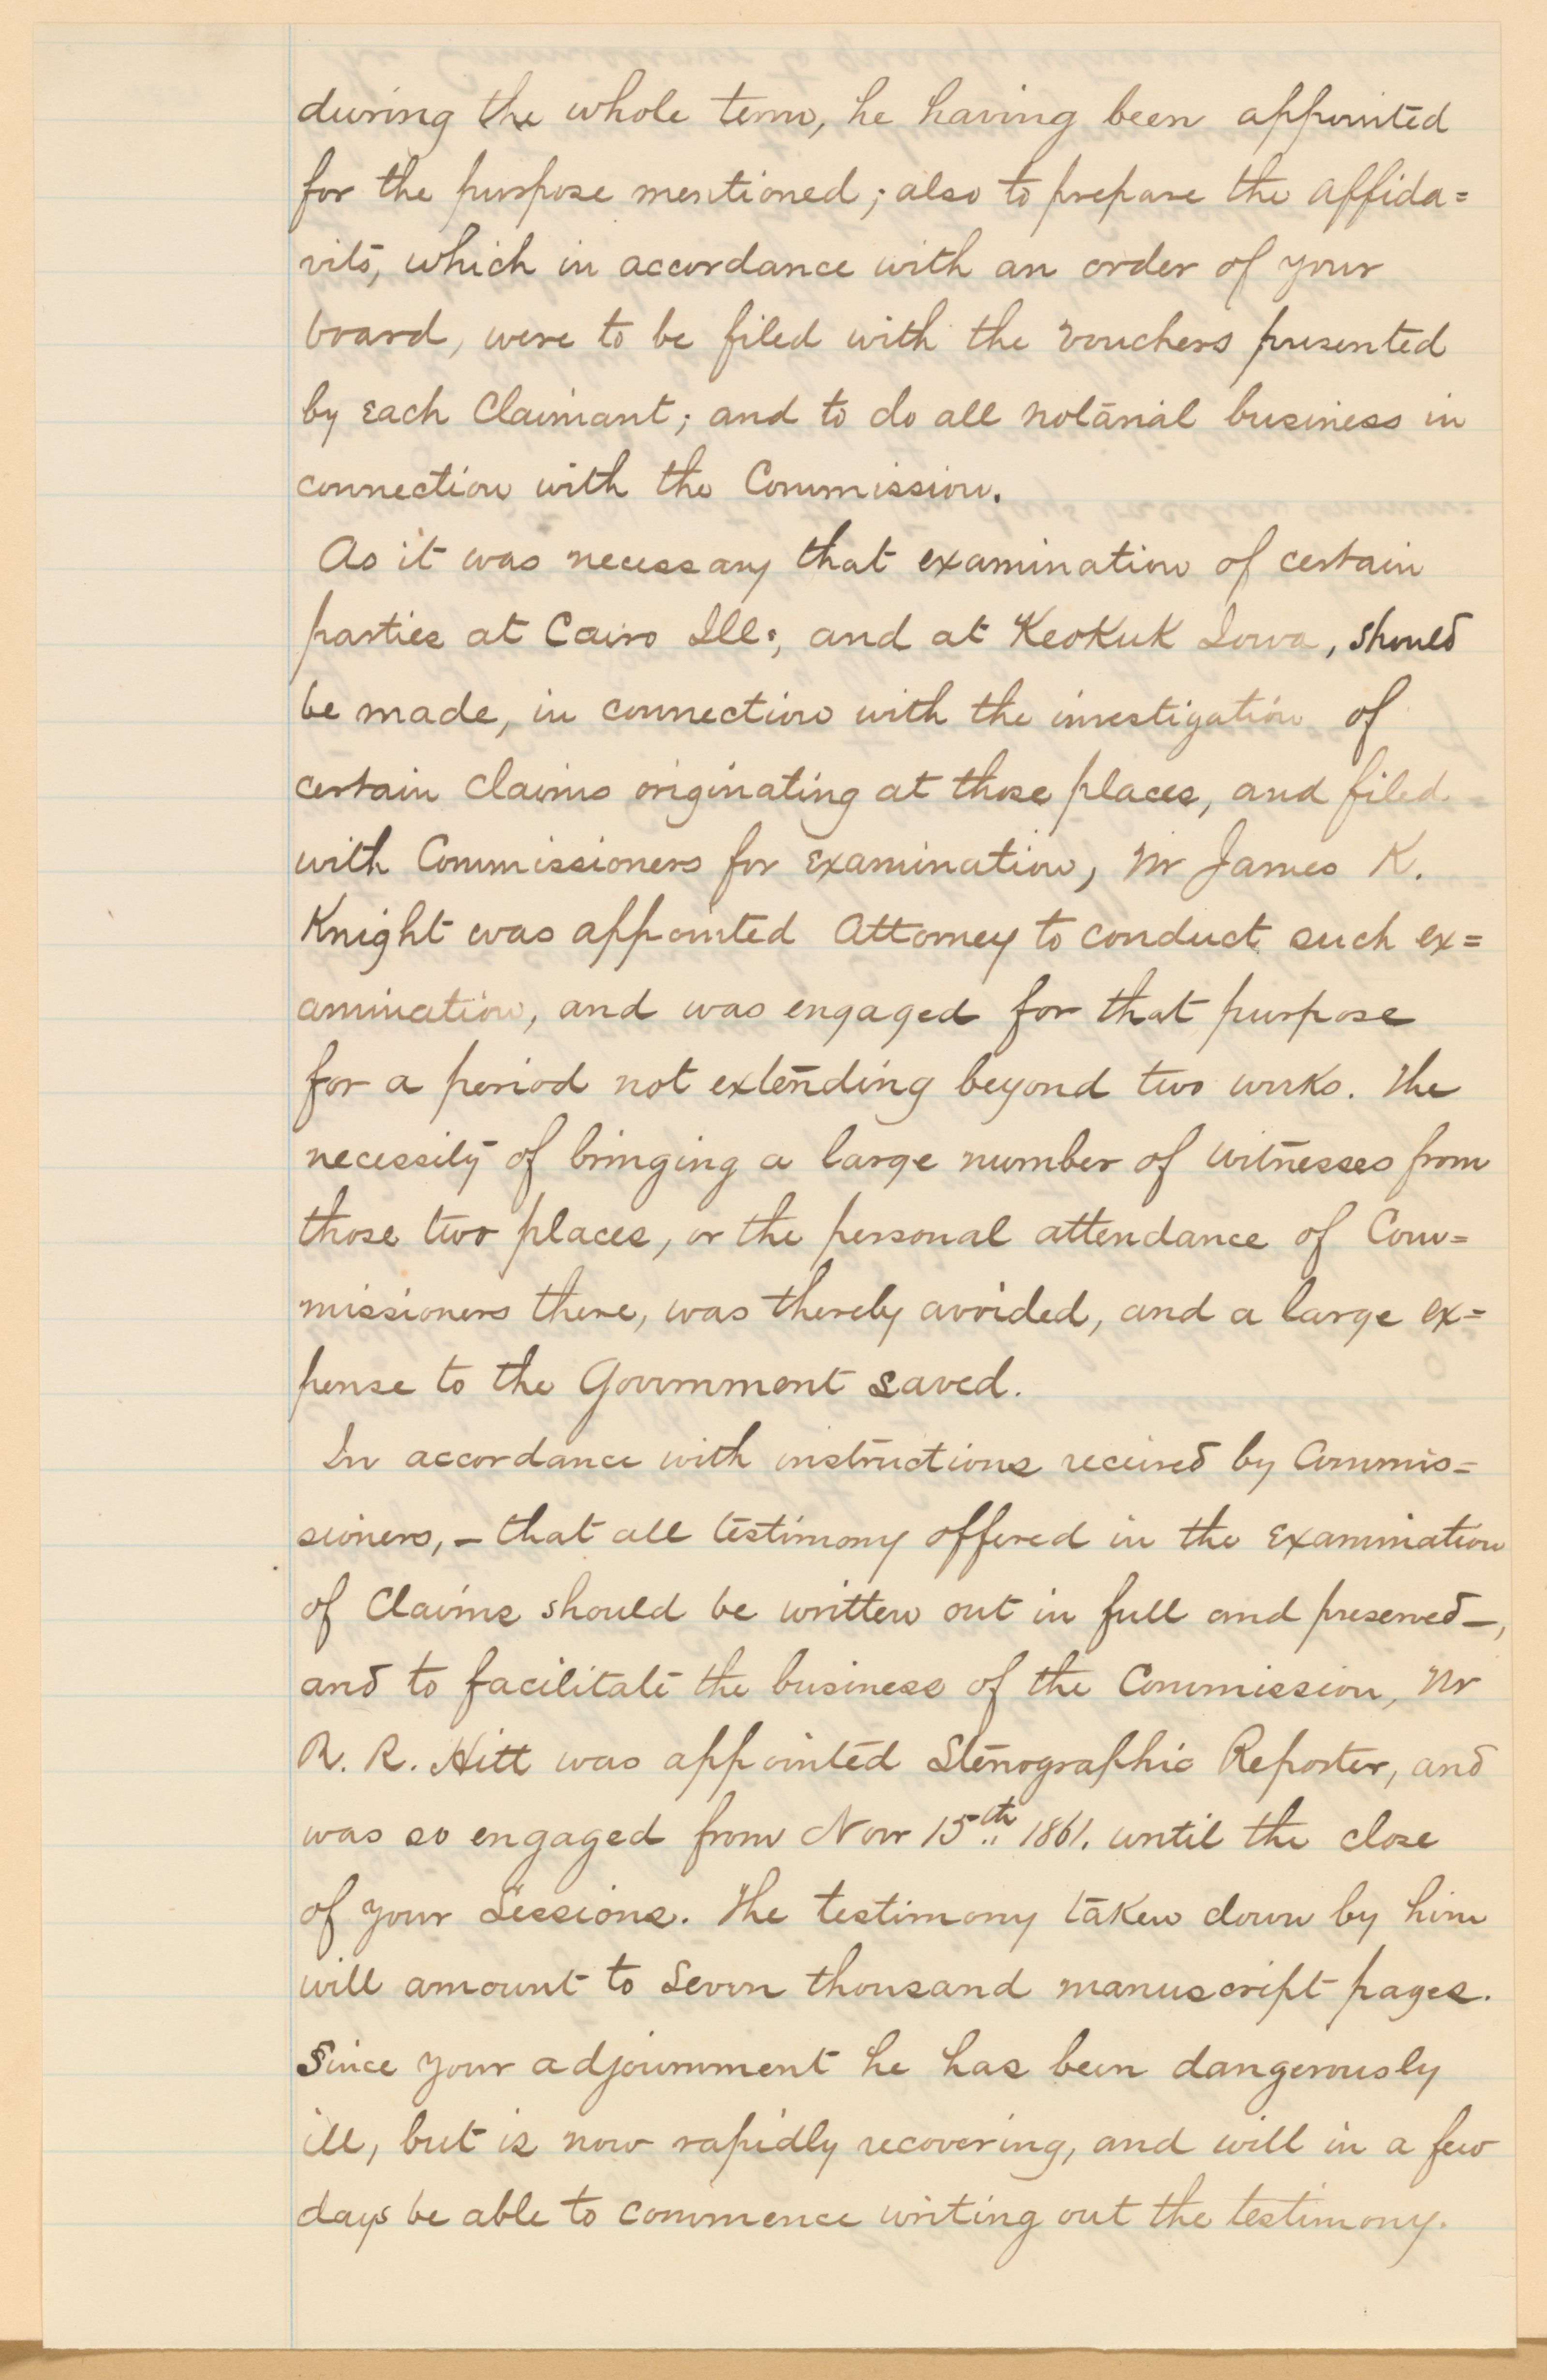 during the whole term, he having been appointed
for the purpose mentioned; also to prepare the affida=
vits, which in accordance with an order of your
board, were to be filed with the vouchers presented
by each Claimant; and to do all notarial business in
connection with the Commission.
As it was necessary that examination of certain
parties at Cairo Ill:, and at Keokuk Iowa, should
be made, in connection with the investigation of
certain claims originating at those places, and filed
with Commissioners for examination, Mr James K.
Knight was appointed Attorney to conduct such ex=
amination, and was engaged for that purpose
for a period not extending beyond two weeks. The
necessity of bringing a large number of witnesses from
those two places, or the personal attendance of Com=
missioners there, was thereby avoided, and a large ex=
pense to the Government saved.
In accordance with instructions received by Commis=
sioners, – that all testimony offered in the examination
of Claims should be written out in full and preserved –,
and to facilitate the business of the Commission, Mr
R. R. Hitt was appointed Stenographic Reporter, and
was so engaged from Nov 15th 1861. until the close
of your Sessions. The testimony taken down by him
will amount to seven thousand manuscript pages.
Since your adjournment he has been dangerously
ill, but is now rapidly recovering, and will in a few
days be able to commence writing out the testimony.